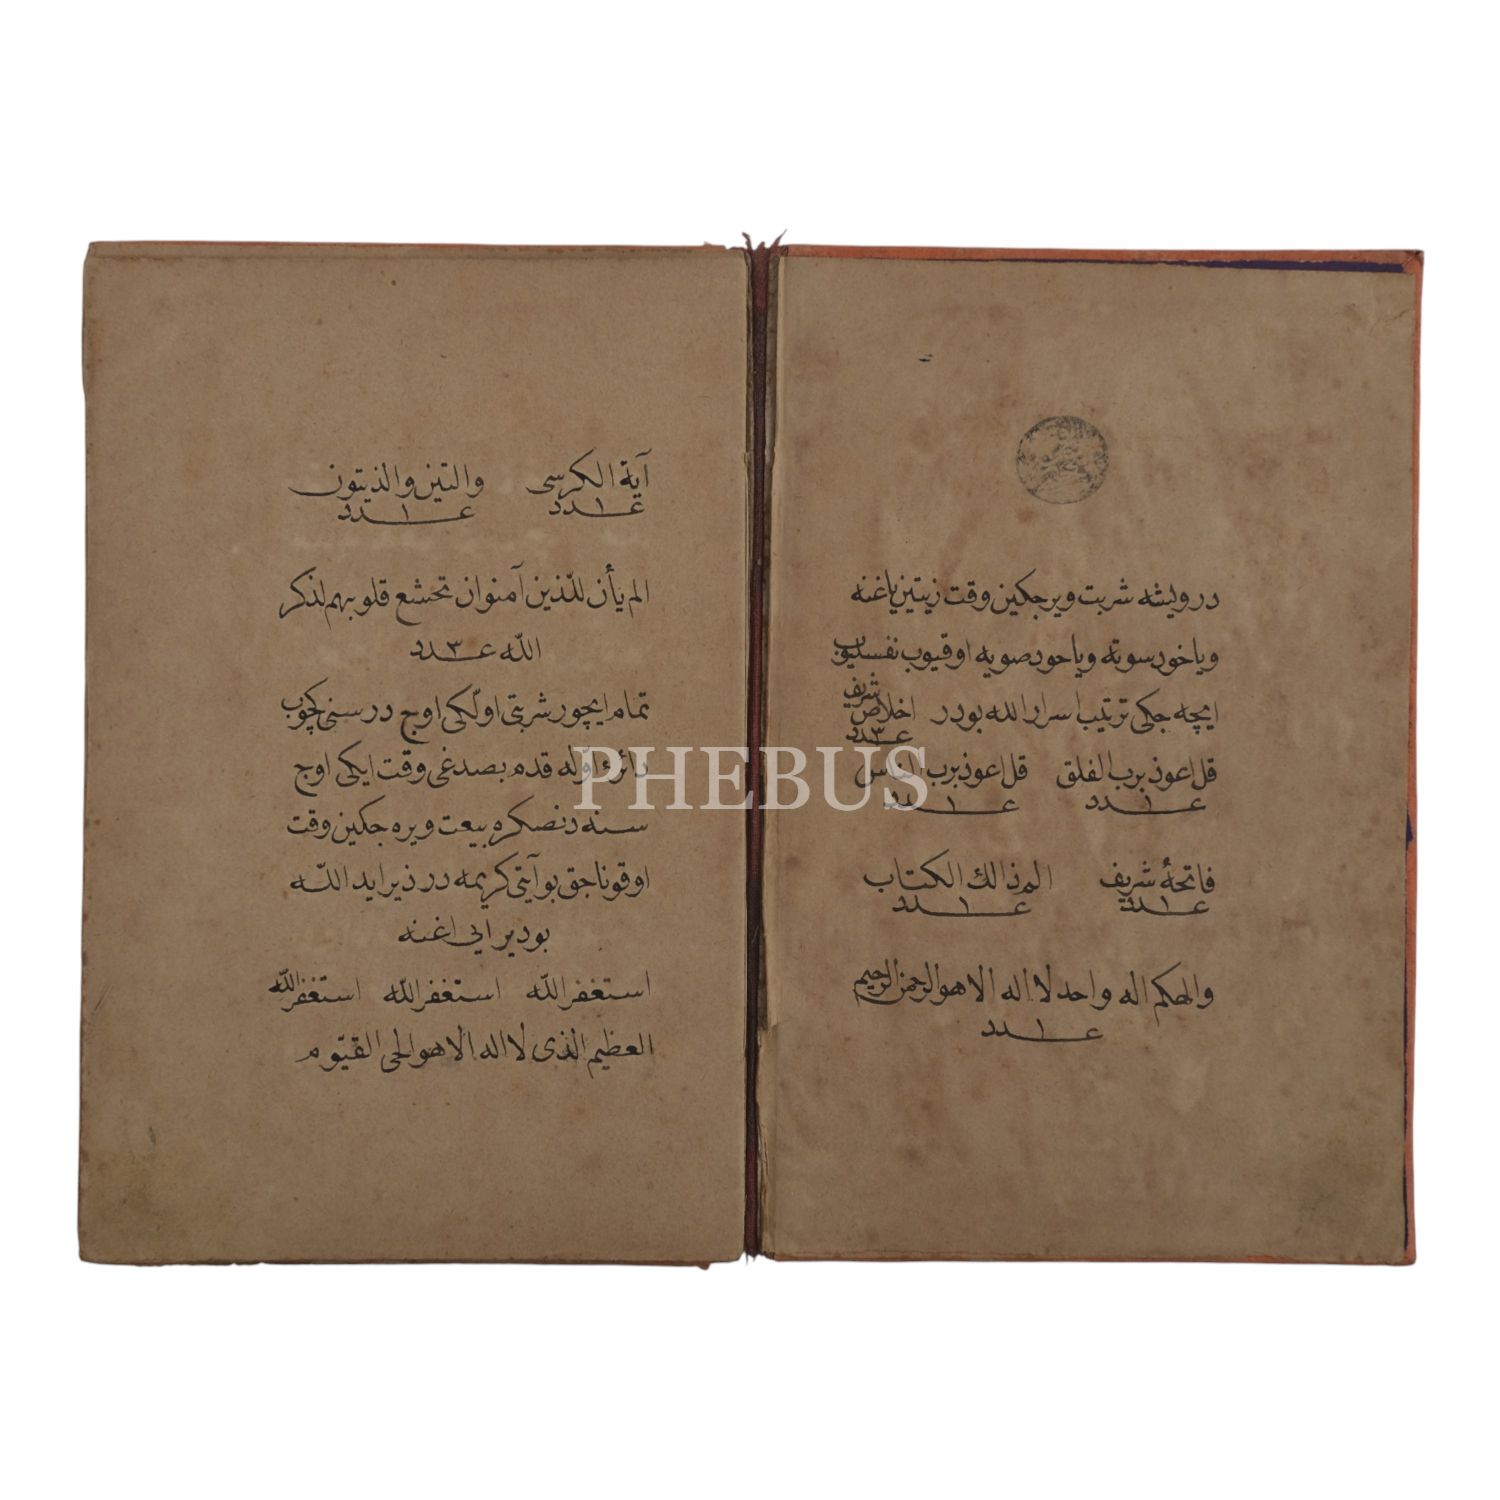 درويشه شربت ويرجكين وقت زيتين ياغنه
وياخود سوته وياخود صويه اوقيوب نفسليوب
ايچه جكى ترتيب اسرار الله بودر اخلاص شريف
عدد ٣
قل اعوذ برب الفلق قل اعوذ برب الناس
عدد ١ عدد ١
فاتحۀ شريف الم ذالك الكتاب
عدد ١ عدد ١
والهكم اله واحد لا اله الا هو الرحمن الرحيم
عدد ١
آية الكرسى والتين والذيتون
عدد ١ عدد ١
الم يأن للّذين آمنوا ان تخشع قلوبهم لذكر
اللّه عدد ٣
تمام ايچور شربتى اولّكى اوج درسنى كچوب
دائرۀ اوله قدم بصدغى وقت ايكى اوج
سنه دنصكره بيعت ويره جكين وقت
اوقوناجق بو آيتى كريمه در ذير ايد اللّه
بودير اغنه
استغفر اللّه استغفر اللّه استغفر اللّه
العظيم الذى لا اله الا هو الحى القيّوم
PHEBUS